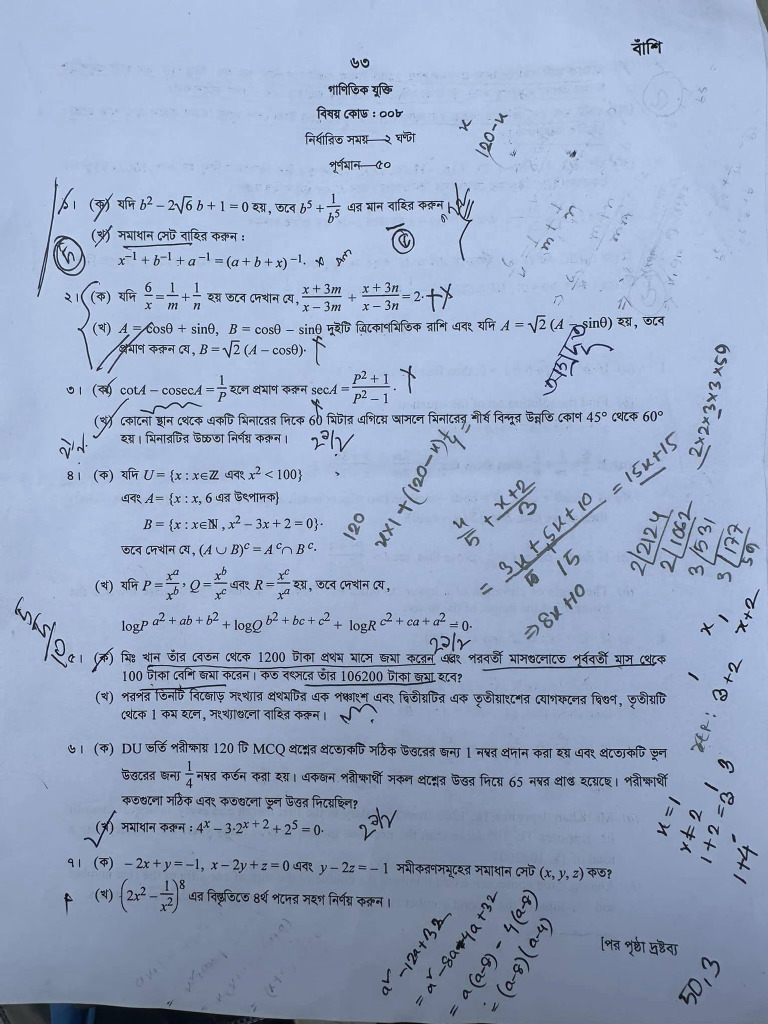 বাঁশি
৬৩
গাণিতিক যুক্তি
বিষয় কোড : ০০৮
নির্ধারিত সময়—২ ঘণ্টা
পূর্ণমান—৫০
x
120-x
১। (ক) যদি b² − 2√6 b + 1 = 0 হয়, তবে b⁵ + 1/b⁵ এর মান বাহির করুন।
(খ) সমাধান সেট বাহির করুন :
x⁻¹ + b⁻¹ + a⁻¹ = (a + b + x)⁻¹.
২। (ক) যদি 6/x = 1/m + 1/n হয় তবে দেখান যে, (x + 3m)/(x − 3m) + (x + 3n)/(x − 3n) = 2.
(খ) A = cosθ + sinθ, B = cosθ − sinθ দুইটি ত্রিকোণমিতিক রাশি এবং যদি A = √2 (A − sinθ) হয়, তবে
প্রমাণ করুন যে, B = √2 (A − cosθ).
৩। (ক) cotA − cosecA = 1/P হলে প্রমাণ করুন secA = (P² + 1)/(P² − 1).
(খ) কোনো স্থান থেকে একটি মিনারের দিকে 60 মিটার এগিয়ে আসলে মিনারের শীর্ষ বিন্দুর উন্নতি কোণ 45° থেকে 60°
হয়। মিনারটির উচ্চতা নির্ণয় করুন।
৪। (ক) যদি U = {x : x∈ℤ এবং x² < 100}
এবং A = {x : x, 6 এর উৎপাদক}
B = {x : x∈ℕ, x² − 3x + 2 = 0}.
তবে দেখান যে, (A ∪ B)ᶜ = Aᶜ ∩ Bᶜ.
(খ) যদি P = xᵃ/xᵇ, Q = xᵇ/xᶜ এবং R = xᶜ/xᵃ হয়, তবে দেখান যে,
logP^(a² + ab + b²) + logQ^(b² + bc + c²) + logR^(c² + ca + a²) = 0.
৫। (ক) মিঃ খান তাঁর বেতন থেকে 1200 টাকা প্রথম মাসে জমা করেন এবং পরবর্তী মাসগুলোতে পূর্ববর্তী মাস থেকে
100 টাকা বেশি জমা করেন। কত বৎসরে তাঁর 106200 টাকা জমা হবে?
(খ) পরপর তিনটি বিজোড় সংখ্যার প্রথমটির এক পঞ্চাংশ এবং দ্বিতীয়টির এক তৃতীয়াংশের যোগফলের দ্বিগুণ, তৃতীয়টি
থেকে 1 কম হলে, সংখ্যাগুলো বাহির করুন।
৬। (ক) DU ভর্তি পরীক্ষায় 120 টি MCQ প্রশ্নের প্রত্যেকটি সঠিক উত্তরের জন্য 1 নম্বর প্রদান করা হয় এবং প্রত্যেকটি ভুল
উত্তরের জন্য 1/4 নম্বর কর্তন করা হয়। একজন পরীক্ষার্থী সকল প্রশ্নের উত্তর দিয়ে 65 নম্বর প্রাপ্ত হয়েছে। পরীক্ষার্থী
কতগুলো সঠিক এবং কতগুলো ভুল উত্তর দিয়েছিল?
(খ) সমাধান করুন : 4ˣ − 3·2ˣ⁺² + 2⁵ = 0.
৭। (ক) − 2x + y = −1, x − 2y + z = 0 এবং y − 2z = − 1 সমীকরণসমূহের সমাধান সেট (x, y, z) কত?
(খ) (2x² − 1/x²)⁸ এর বিস্তৃতিতে ৪র্থ পদের সহগ নির্ণয় করুন।
[পর পৃষ্ঠা দ্রষ্টব্য
2×2×3×3×59
2|2124
2|1062
3|531
3|177
59
120
x/5 + (x+2)/3
= (3x+5x+10)/15 = 15x+15
⇒ 8x+10
x 1
x+2
3+2
x=1
1+2=3
1+4
a²-12a+32
= a²-8a-4a+32
= a(a-8) - 4(a-8)
= (a-8)(a-4)
50,3